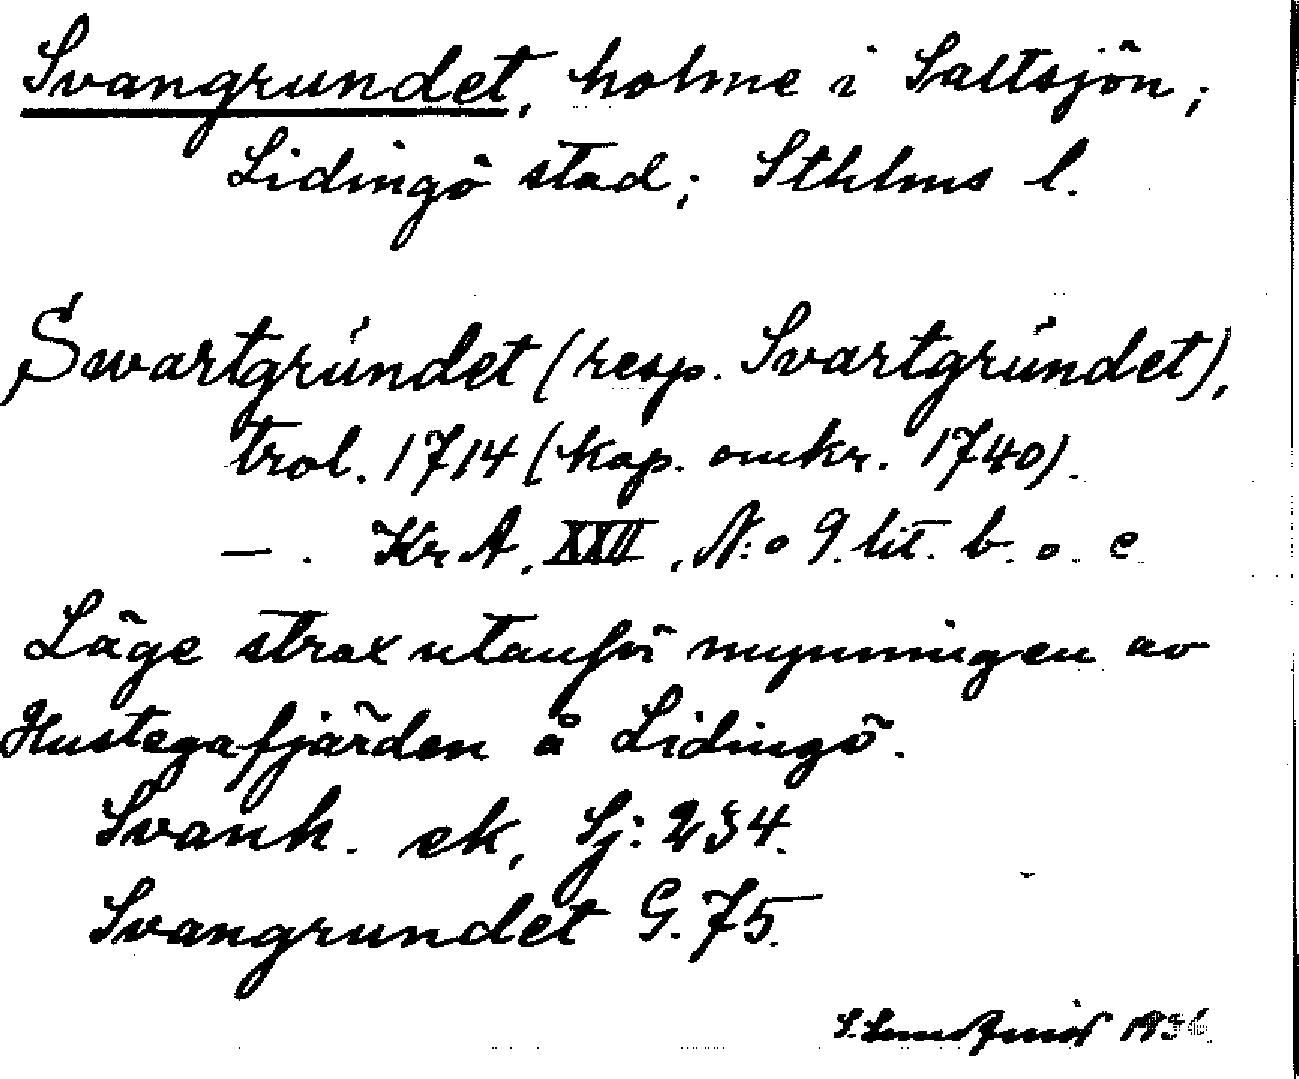 Svangrundet, holme i Saltsjön;
Lidingö stad; Sthlms l.
Swartgrúndet (resp. Svartgrúndet),
trol. 1714 (kop. omkr. 1740).
— . KrA, XXII, N:o 9. lit. b. o. c
Läge strax utanför mynningen av
Hustegafjärden å Lidingö.
Svank. ek, Sj: 234.
Svangrundet G. 75.
S. 1936